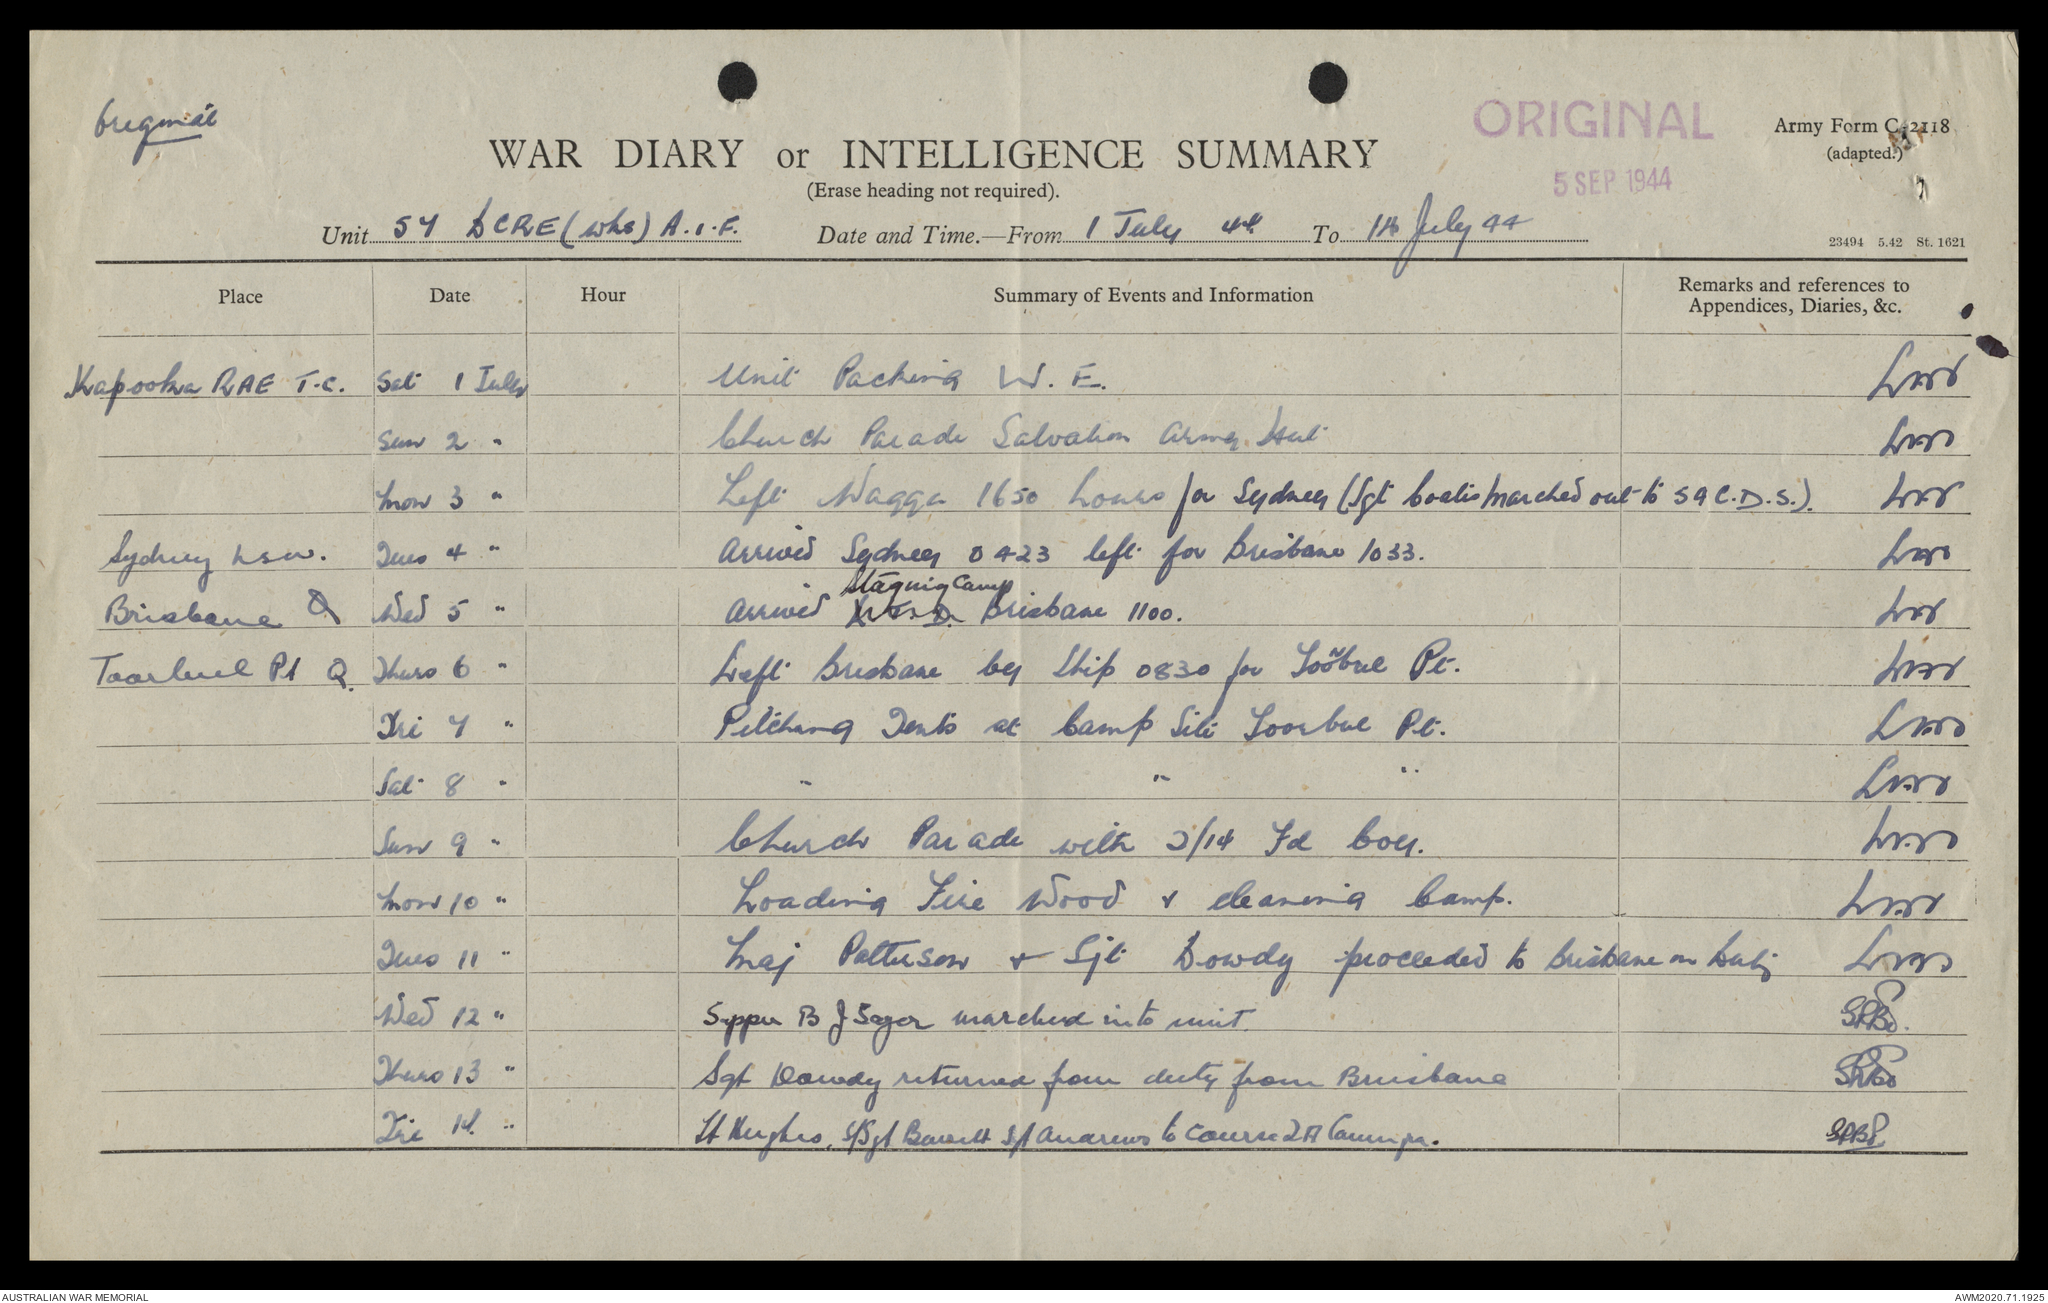 Original
ORIGINAL
5 SEP 1944
Army Form C.2118
(adapted.)
WAR DIARY or INTELLIGENCE SUMMARY
(Erase heading not required).
Unit 57 DCRE (Wks) A.I.F. Date and Time.—From 1 July 44 To 14 July 44
23494 5.42 St. 1621
Place Date Hour Summary of Events and Information Remarks and references to Appendices, Diaries, &c.
Kapooka RAE T.C. Sat 1 July Unit Packing W.E.
Sun 2 " Church Parade Salvation Army Hut
Mon 3 " Left Wagga 1650 hours for Sydney (Sgt marched out to 59 C.D.S.).
Sydney NSW. Tues 4 " Arrived Sydney 0423 left for Brisbane 1033.
Staging Camp
Brisbane Q Wed 5 " Arrived Brisbane 1100.
Toorbul Pt Q. Thurs 6 " Left Brisbane by Ship 0830 for Toorbul Pt.
Fri 7 " Pitching Tents at Camp Site Toorbul Pt.
Sat 8 " " " "
Sun 9 " Church Parade with 2/14 Fd Coy.
Mon 10 " Loading Fire Wood & cleaning Camp.
Tues 11 " Maj Patterson & Sgt Dowdy proceeded to Brisbane on duty
Wed 12 " Sapper B J Sagar marched into unit.
Thurs 13 " Sgt Dowdy returned from duty from Brisbane
Fri 14 " Lt Hughes, S/Sgt Sgt Andrews to Course
AUSTRALIAN WAR MEMORIAL
AWM2020.71.1925